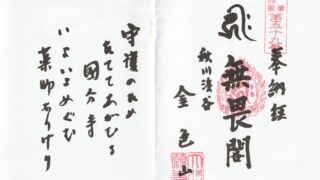 第五十九
奉納経
無畏閣
秋川渓谷
金色山
守護のため
たててあがむる
國分寺
いよいよめぐむ
薬師なりけり